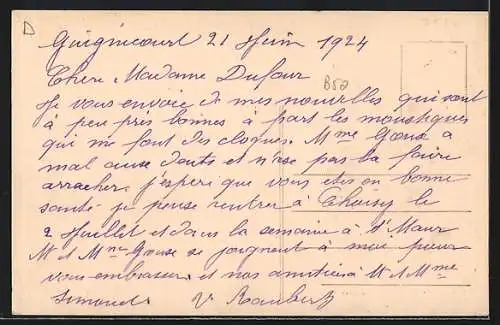 D
Guignicourt 21 Juin 1924
Chere Madame Dufour
B50
Je vous envoie de mes nouvelles qui sont
à peu près bonnes à part les moustiques
qui me font des cloques. Mme Gouse a
mal aux dents et n'ose pas la faire
arracher. j'espère que vous etes en bonne
santé je pense rentrer à Choisy le
2 Juillet et dans la semaine à St Maur
Mr et Mme Gouse se joignent à moi pour
vous embrasser et nos amitiés à Mr et Mme
Simonet V